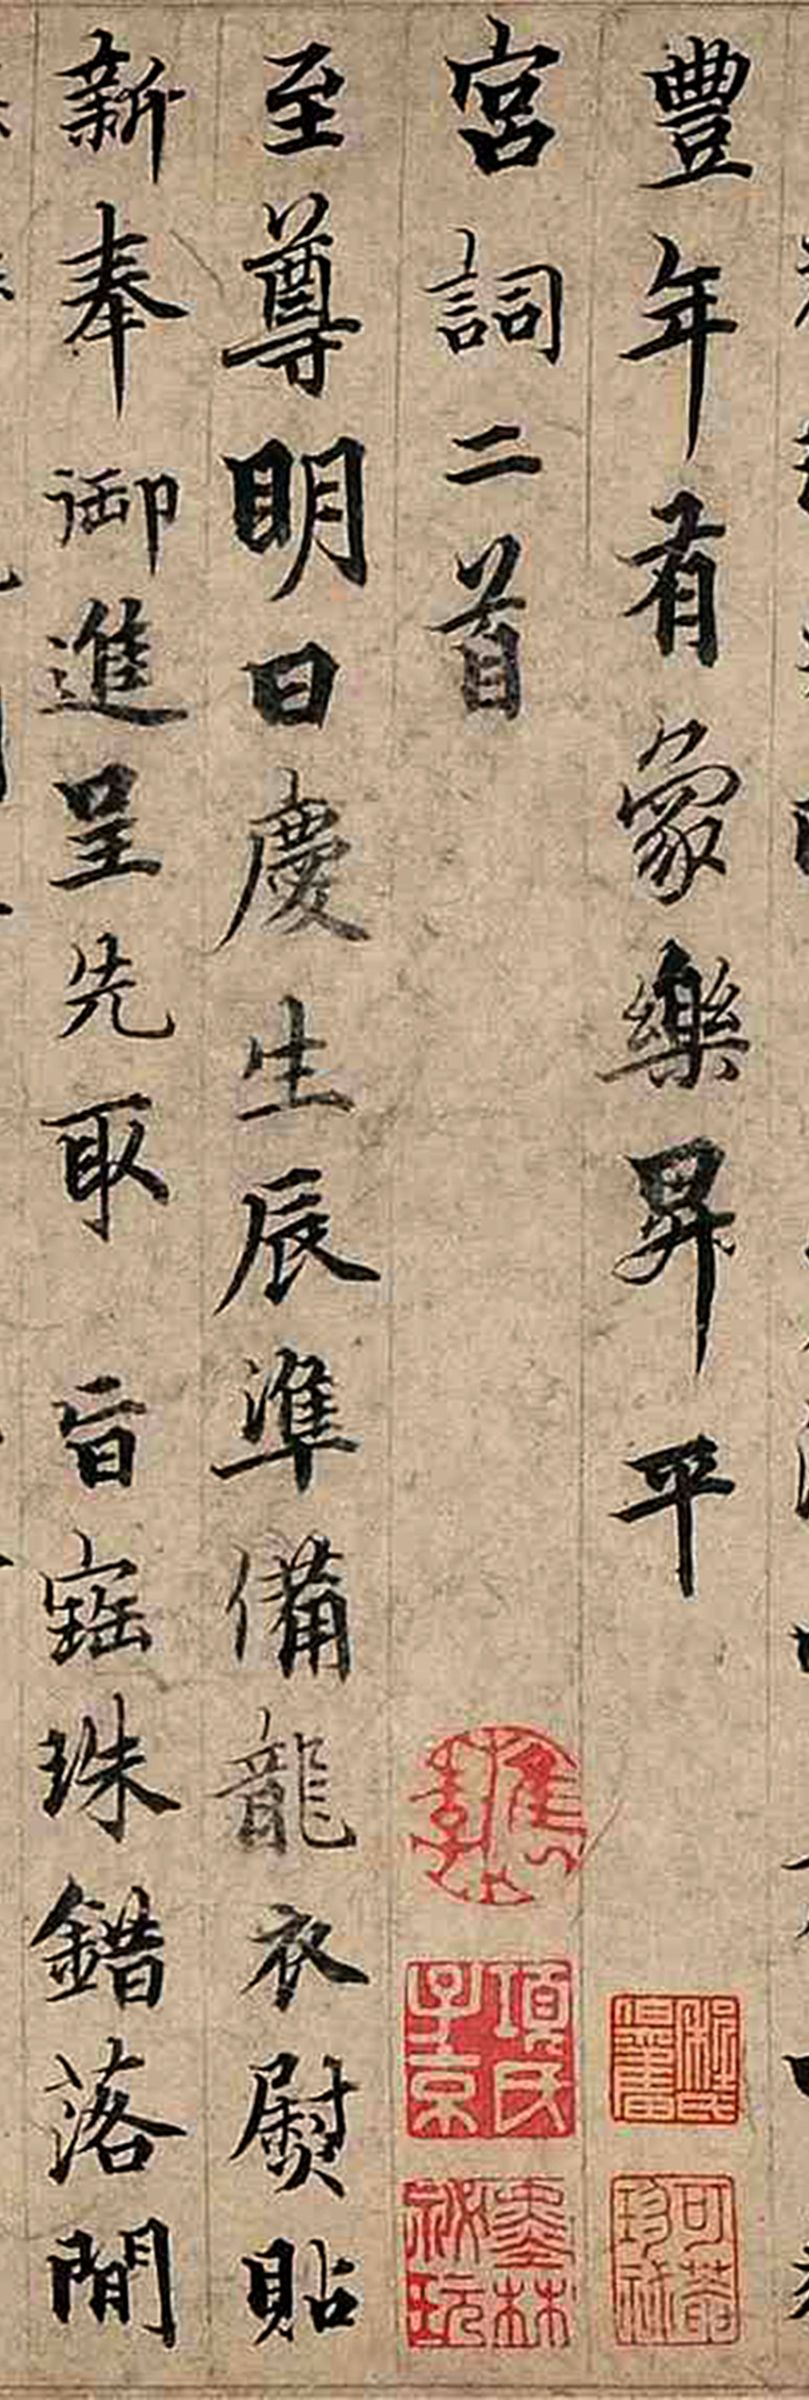 豐年有象樂昇平
宮詞二首
至尊明日慶生辰準備龍衣熨貼
新奉御進呈先取旨寶珠錯落間
項氏子京
墨林秘玩